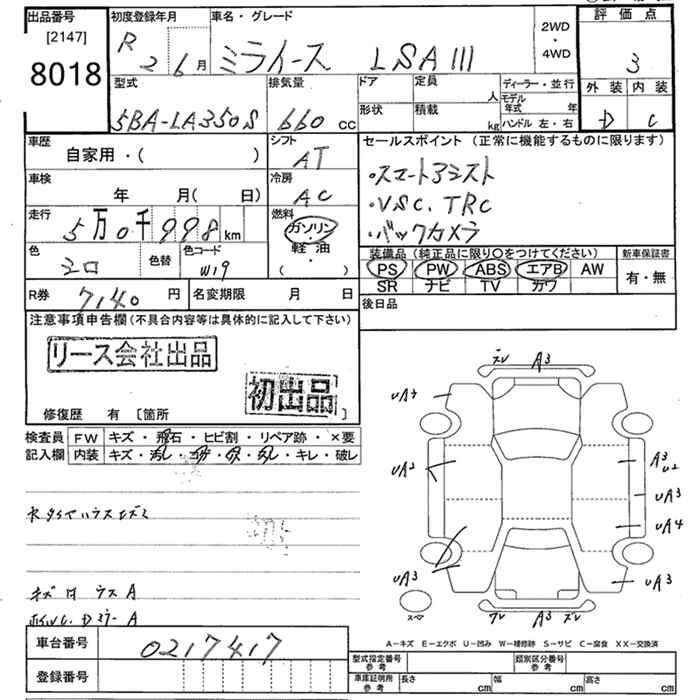 出品番号
[2147]
8018
初度登録年月
R 2 6月
車名・グレード
ミライース LSA III
2WD
・
4WD
評価点
3
外装 内装
D C
型式
5BA-LA350S
排気量
660 cc
ドア
形状
定員 人
積載 kg
ディーラー・並行
モデル年式 年
ハンドル 左・右
車歴
自家用・( )
シフト
AT
車検
年 月( 日)
冷房
AC
走行
5万0千998km
燃料
ガソリン
・
軽油
( )
色
シロ
色替
色コード
W19
R券 7140円
名変期限 月 日
セールスポイント (正常に機能するものに限ります)
・スマートアシスト
・VSC. TRC
・バックカメラ
装備品 (純正品に限り○をつけてください)
PS PW ABS エアB AW
SR ナビ TV カワ
新車保証書
有・無
後日品
注意事項申告欄(不具合内容等は具体的に記入して下さい)
リース会社出品
初出品
修復歴 有 [箇所 ]
検査員記入欄
FW キズ・飛石・ヒビ割・リペア跡・×要
内装 キズ・汚レ・コゲ・穴・スレ・キレ・破レ
キズ 凹 ウス A
ズレ A3
UA4
UA2
UA3
A3 U2
UA3
UA4
UA3
スペア
ズレ A3 ズレ
A-キズ E-エクボ U-凹み W-補修跡 S-サビ C-腐食 XX-交換済
車台番号 0217417
登録番号
型式指定番号 参考
類別区分番号 参考
車庫証明用 参考
長さ cm 幅 cm 高さ cm